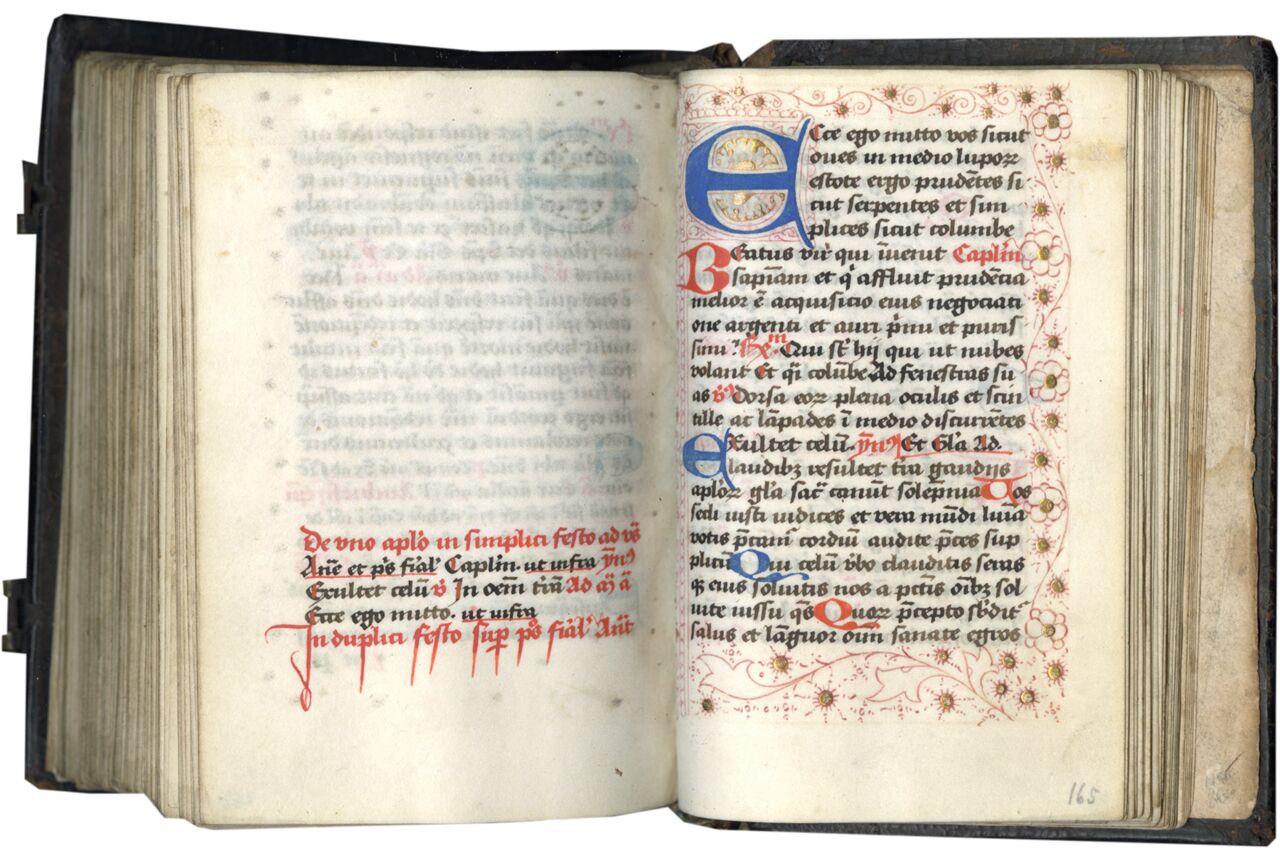 De vno aplo in simplici festo ad vs
Ane et ps fial Caplm. ut infra ym
Exultet celu v In oem tra Ad a a
Ecce ego mitto. ut infra
In duplici festo sup ps fial Ant
Ecce ego mitto vos sicut
oues in medio lupoꝝ
estote ergo prudētes si
cut serpentes et sim
plices sicut columbe
Beatus vir qui īuenit Caplm
sapīam et qͥ affluit prudēcia
melior ē acquisicio eius negociati
one argenti et auri p̄mi et puris
simi ℟m Qui sūt hij qui ut nubes
volant Et qͥ colūbe Ad fenestras su
as v Dorsa eoꝝ plena oculis et scin
tille ac lāpades ī medio discurrētes
Exultet celū. ymꝰ Et Gla Ad.
laudibꝫ resultet tra gaudijs
aploꝝ gla sac̄ canūt solēpnia Vos
secli iusti iudices et vera mūdi luīa
votis p̄cam̄ cordiū audite p̄ces sup
plicū Qui celū v̄bo clauditis seras
qꝫ eius soluitis nos a pctis oībꝫ sol
uite iussu qs Quoꝝ p̄cepto sbditͬ
salus et lāguor oīm sanate egros
165